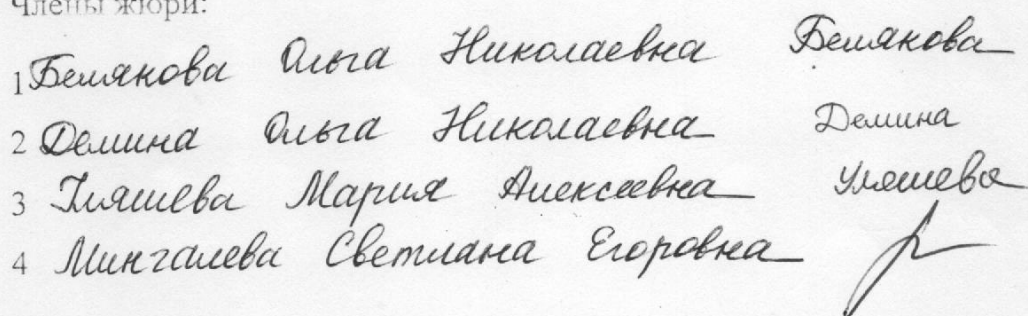 Члены жюри:
1 Белякова Ольга Николаевна Белякова
2 Демина Ольга Николаевна Демина
3 Уляшева Мария Алексеевна Уляшева
4 Мингалева Светлана Егоровна